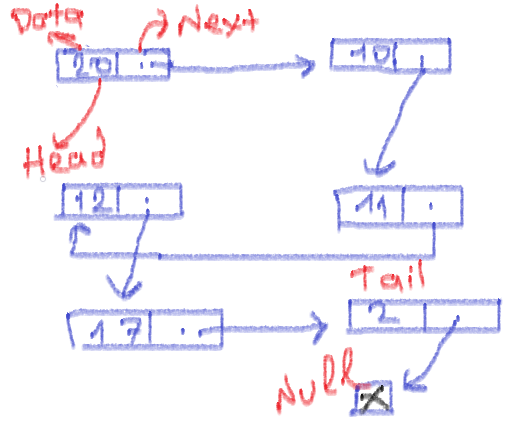 Data Next
20 10
Head
12 11
Tail
17 2
Null X